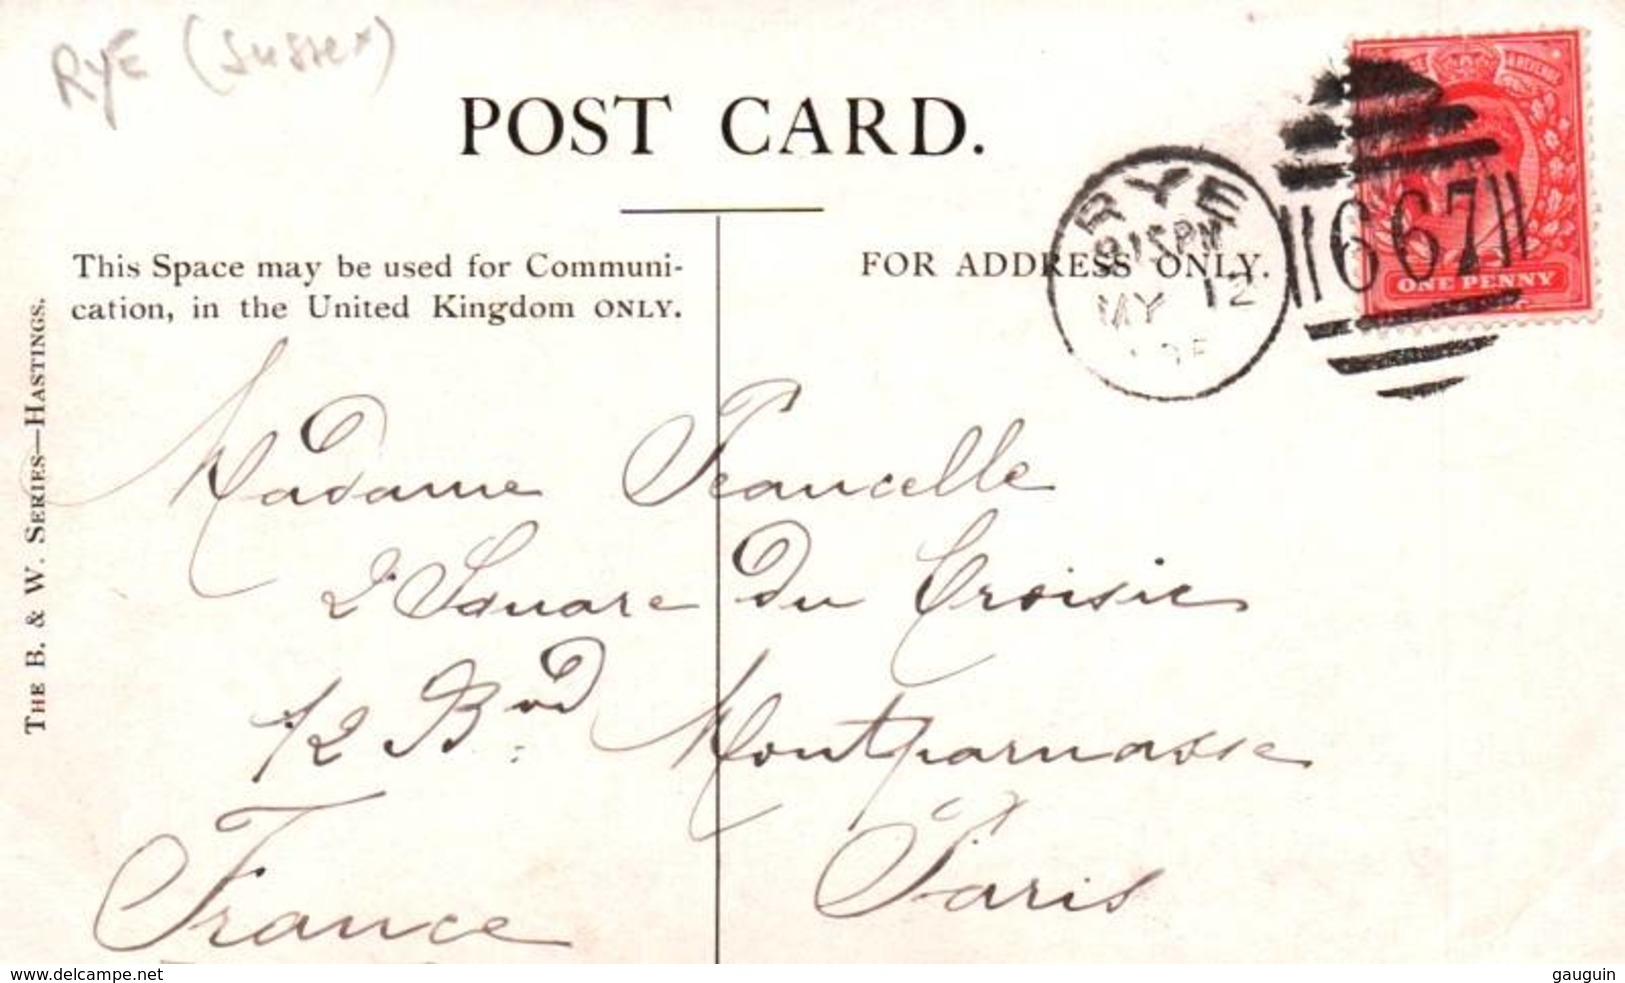 RYE (Sussex)
POST CARD.
This Space may be used for Communi-
cation, in the United Kingdom ONLY.
FOR ADDRESS ONLY.
RYE
MY 12
667
ONE PENNY
THE B. & W. SERIES—HASTINGS.
Madame
2 Square du Croisic
12 Bvd Montparnasse
Paris
France
www.delcampe.net
gauguin